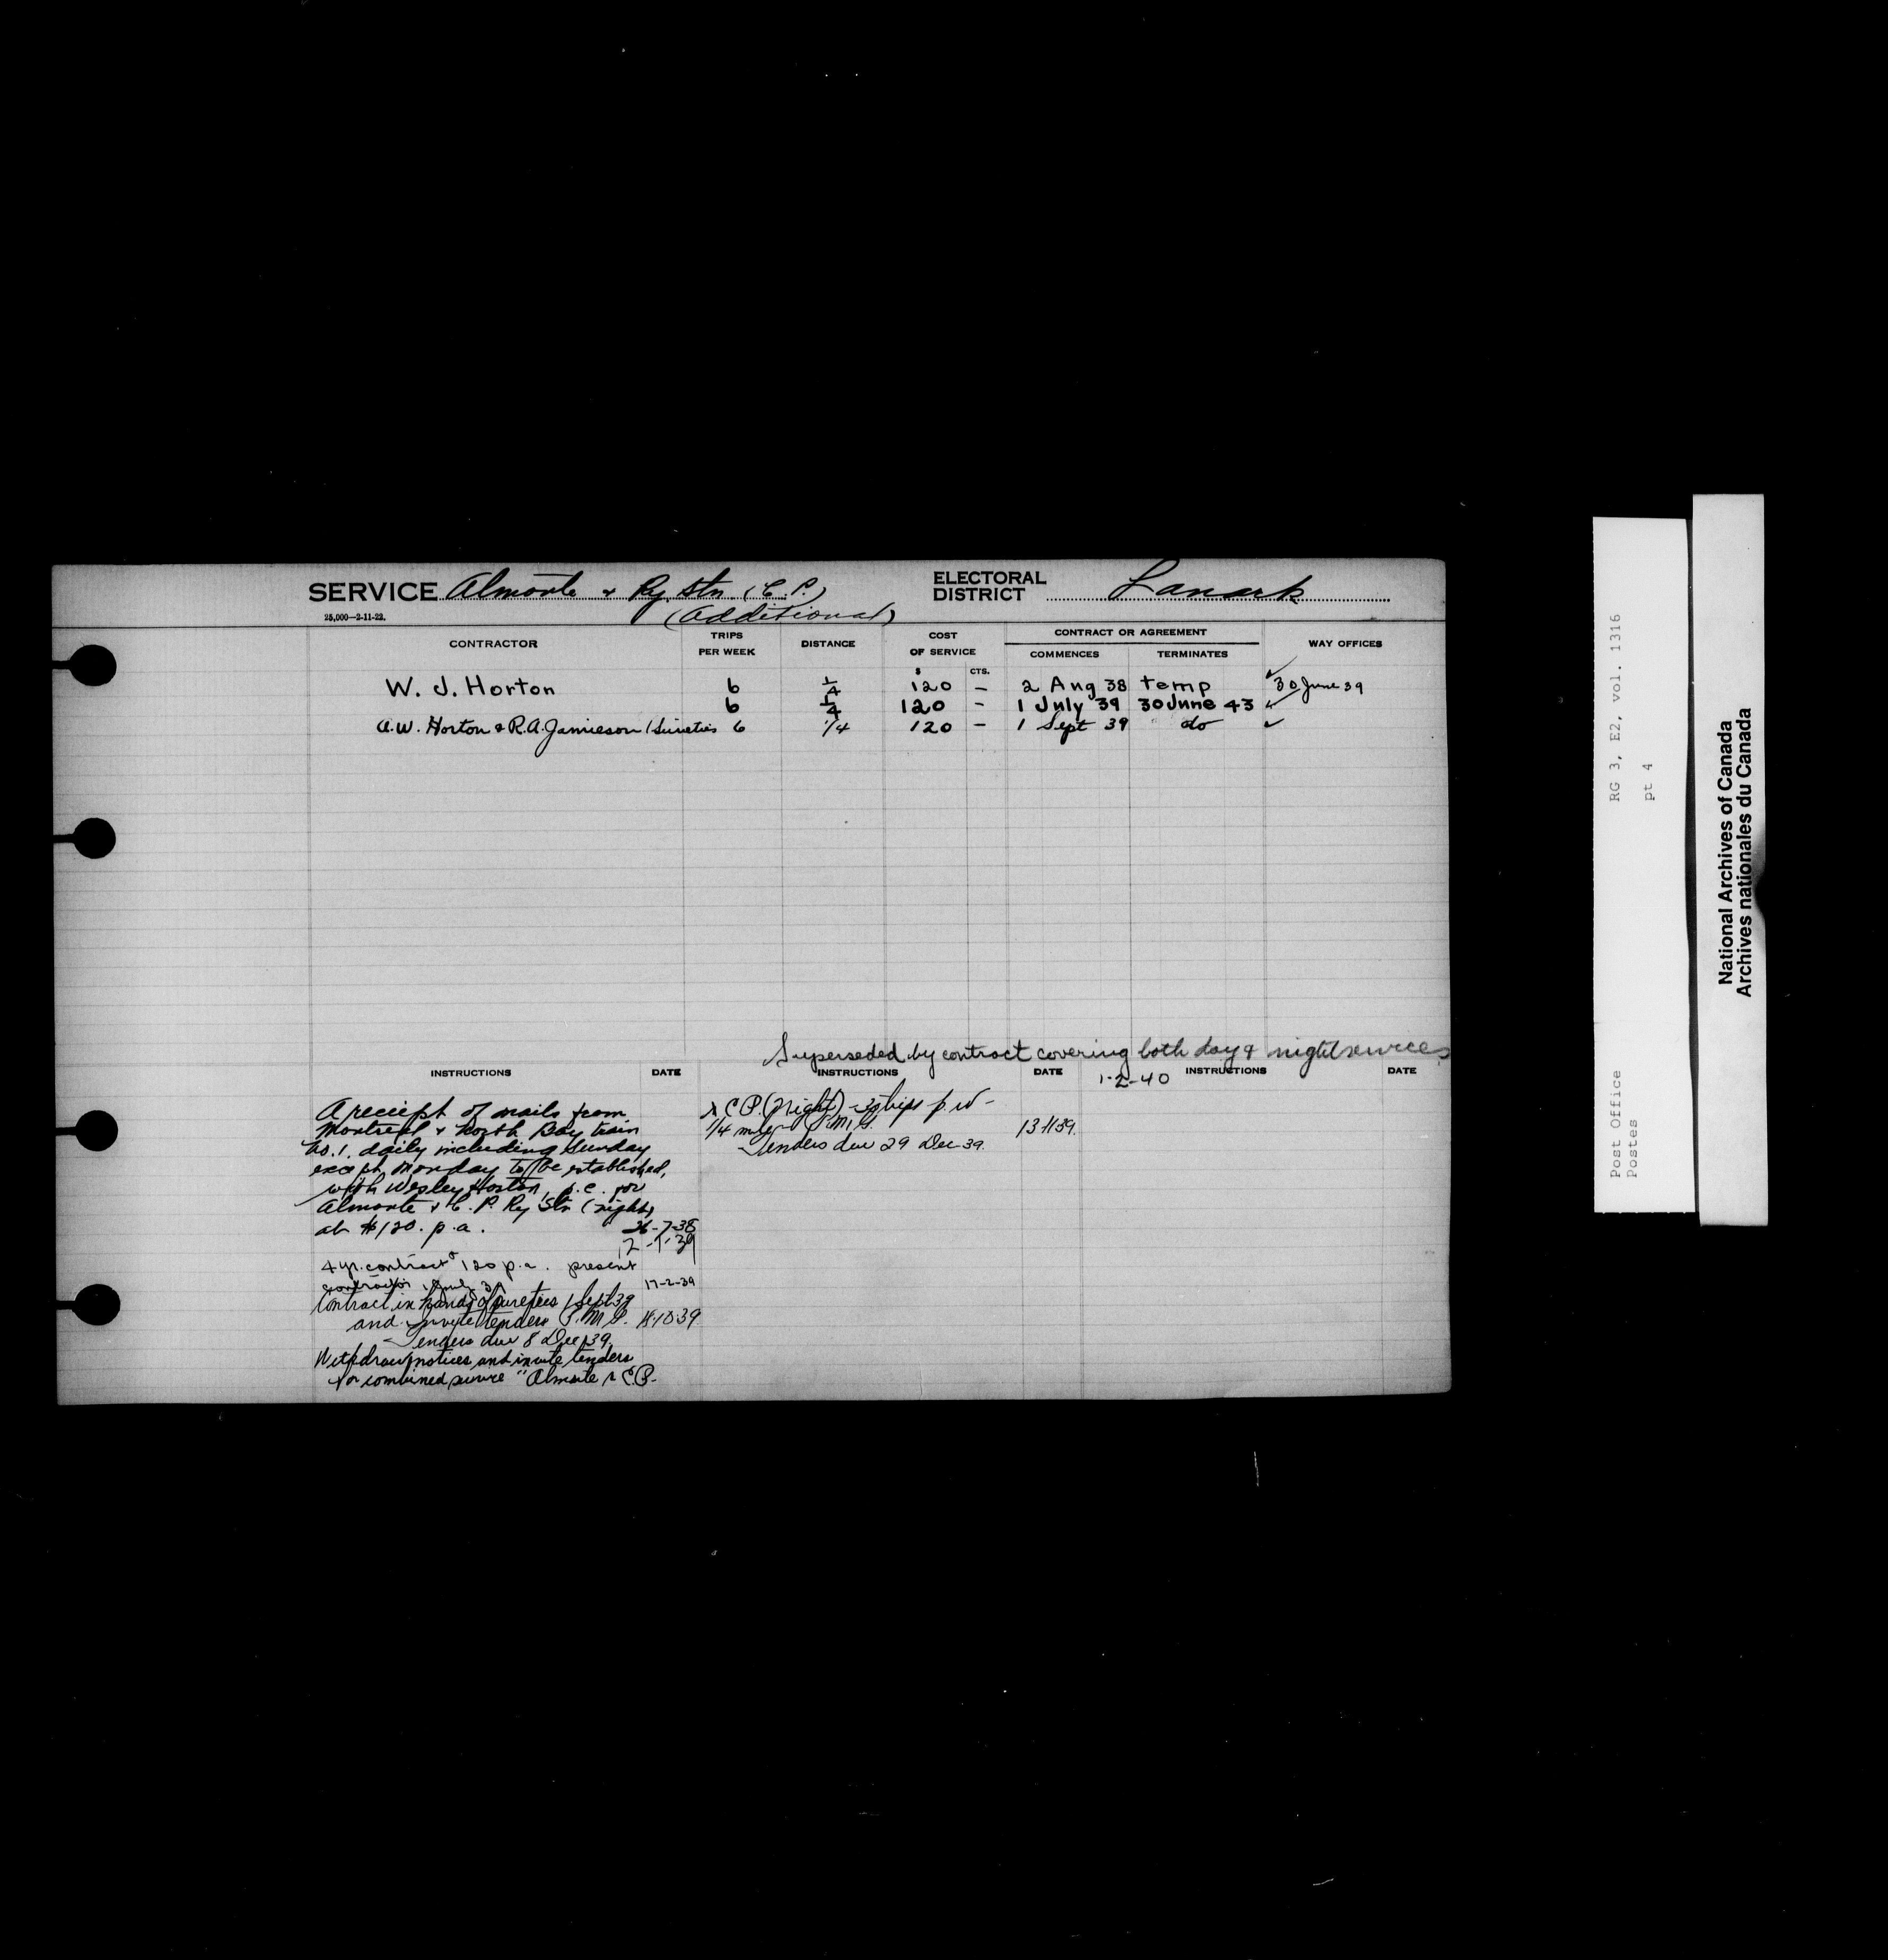 SERVICE Almonte & Ry. Stn. (C. P.)
(Additional)
ELECTORAL DISTRICT Lanark
25,000—2-11-23.
CONTRACTOR TRIPS PER WEEK DISTANCE COST OF SERVICE CONTRACT OR AGREEMENT WAY OFFICES
COMMENCES TERMINATES
$ CTS.
W. J. Horton 6 1/4 120 – 2 Aug 38 temp ✓ 30 June 39
6 1/4 120 – 1 July 39 30 June 43 ✓
A.W. Horton & R.A. Jamieson (Sureties 6 1/4 120 – 1 Sept 39 do ✓
Superseded by contract covering both day & night services
1-2-40
INSTRUCTIONS DATE INSTRUCTIONS DATE INSTRUCTIONS DATE
A receipt of mails from
Montreal & North Bay train
No. 1. daily including Sunday
except Monday to be established,
with Wesley Horton, p.c. for
Almonte & C. P. Ry Stn (night)
at $120. p.a. 26-7-38
12-1-39
4 yr. contract 120 p.a. present
contractor 1 July 39 17-2-39
Contract in hands of sureties 1 Sept 39
and invite tenders P.M.G. 18-10-39
Tenders due 8 Dec 39
Withdraw notices and invite tenders
for combined service "Almonte & C.P.
& C.P. (Night) – 3 trips p.w –
1/4 mile P.M.G. 13-11-39.
Tenders due 29 Dec 39.
Post Office RG 3, E2, vol. 1316
Postes pt 4
National Archives of Canada
Archives nationales du Canada